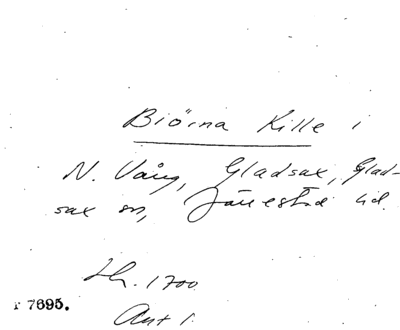 Biöina Kille i
N. Vång, Gladsax, Glad-
sax sn, Järrestad hd.
Lh. 1700
r 7695.
Ant 1.